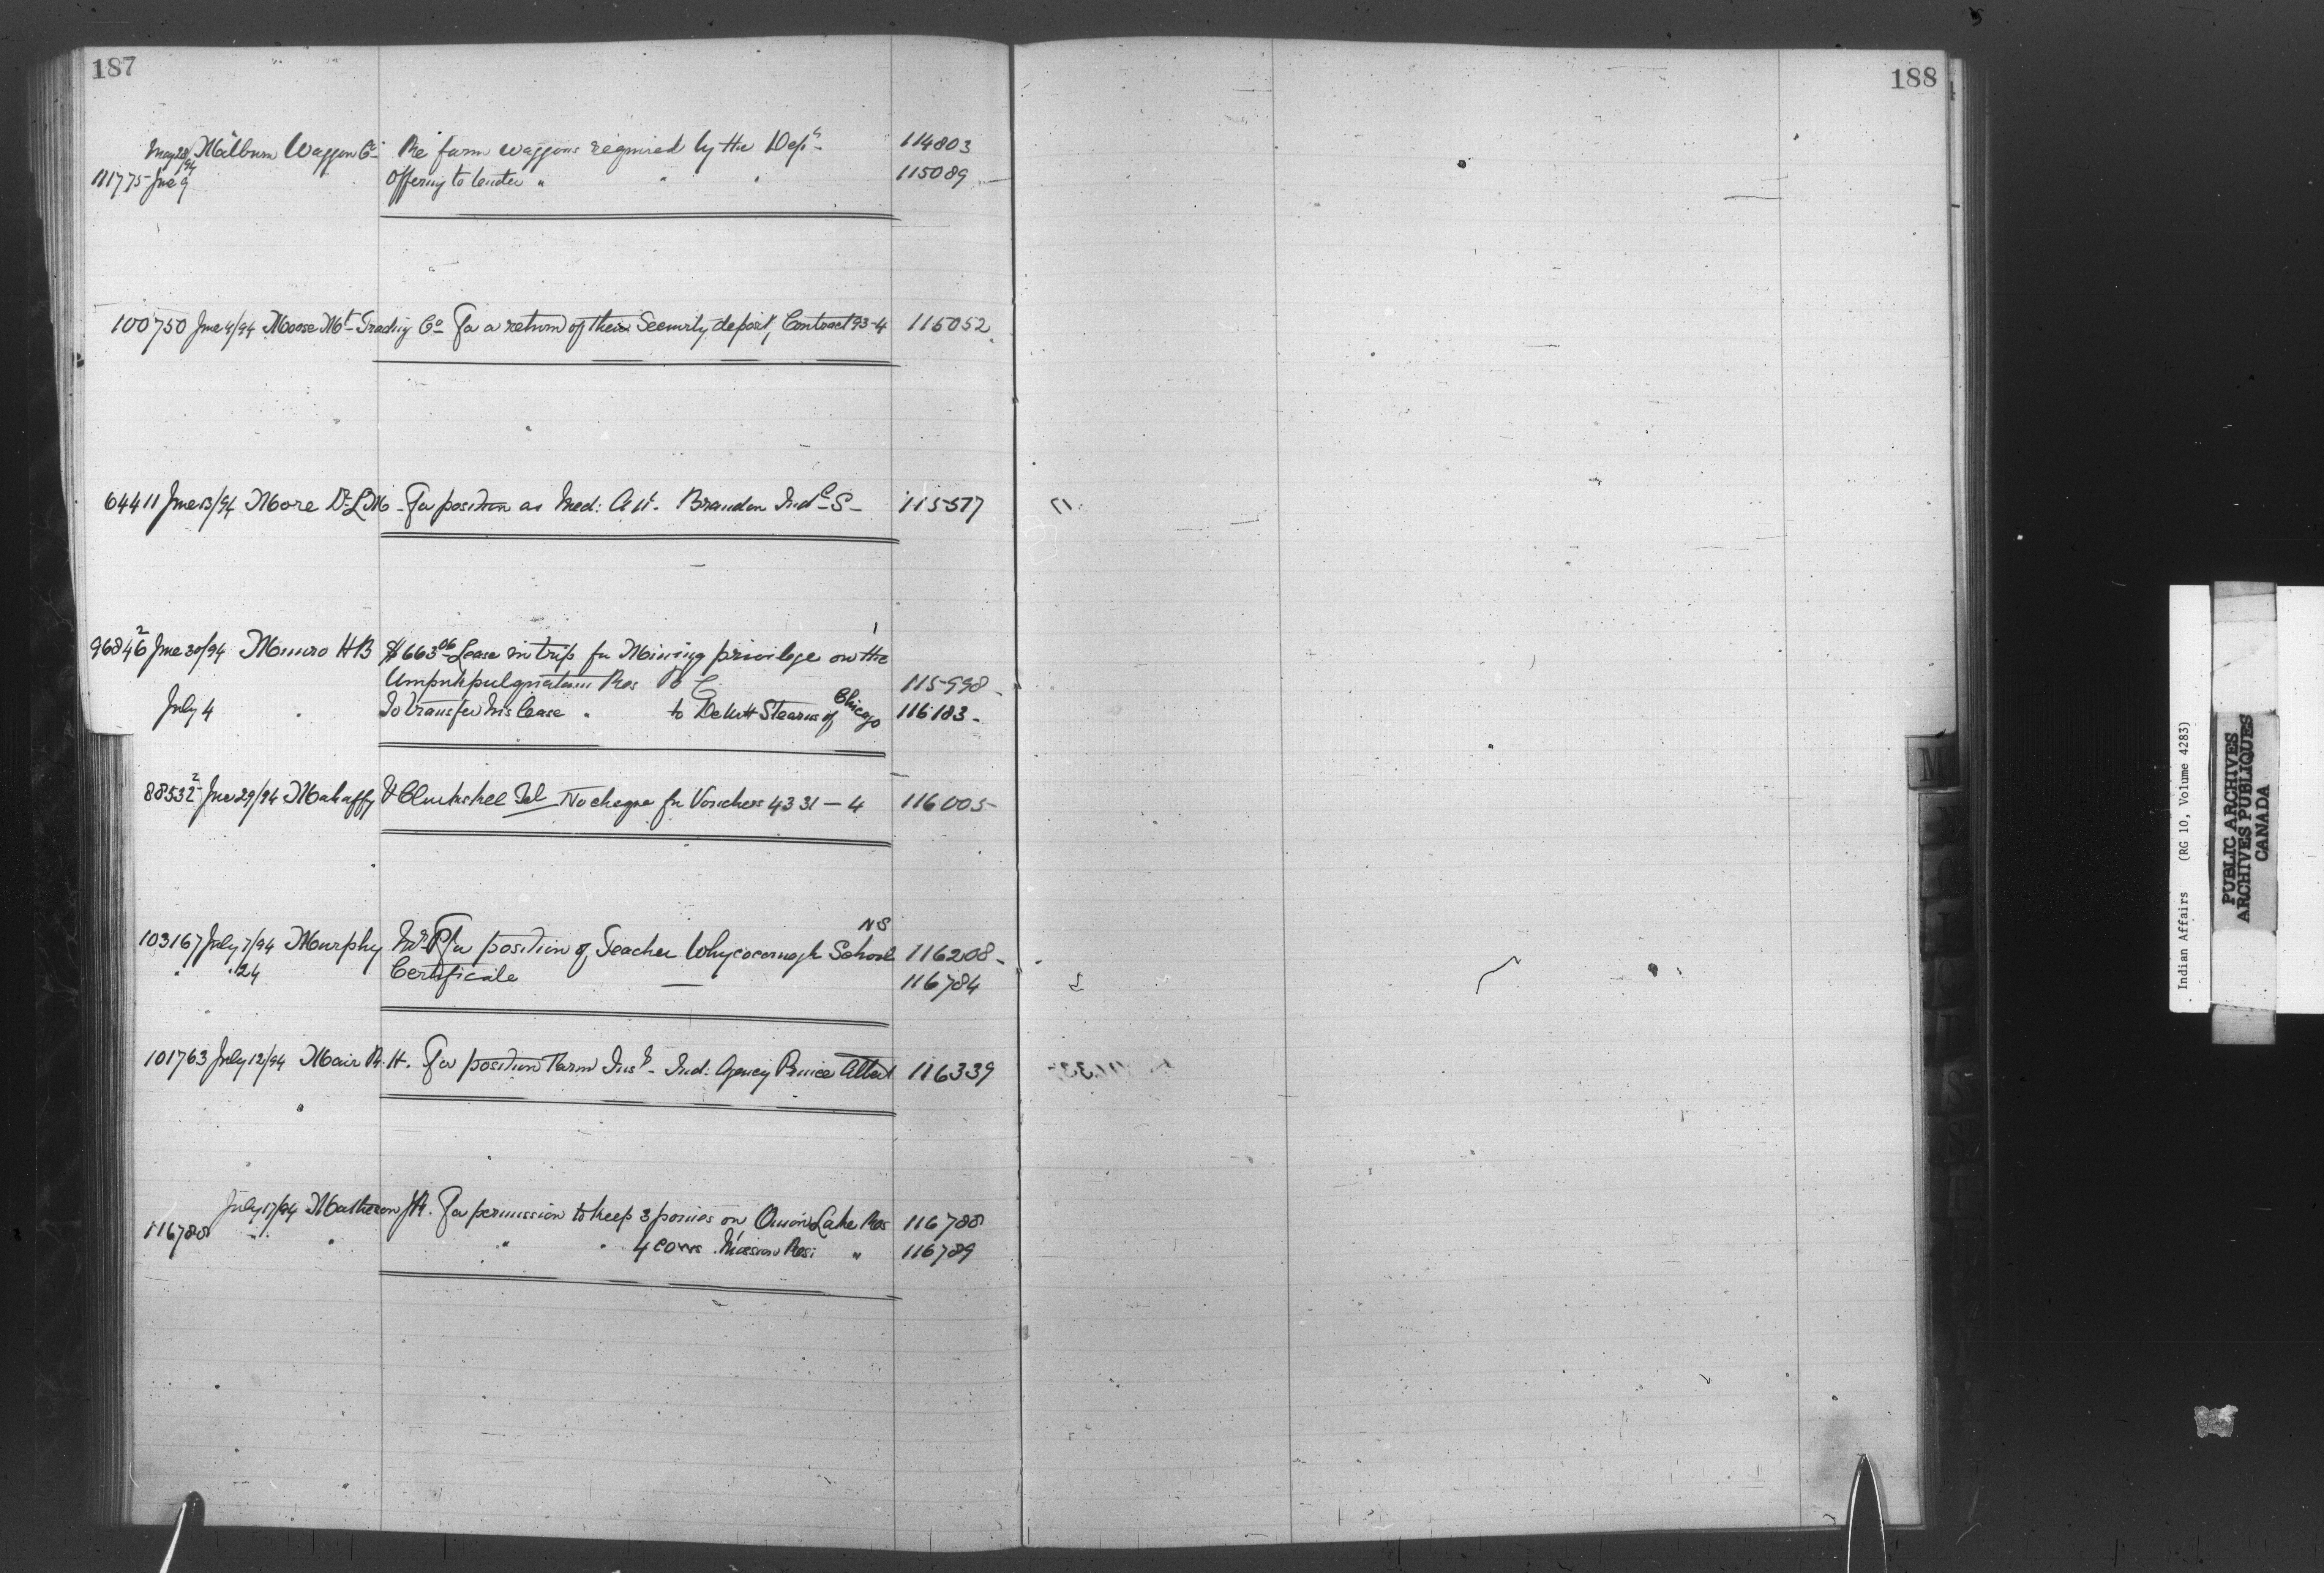 187
188
May 28/94 Milburn Waggon Co Re farm waggons required by the Dept 114803
111775 June 9 Offering to tender " " " 115089
100750 June 4/94 Moose Mt Trading Co For a return of their Security deposit, Contract 93-4 115052
64411 June 13/94 Moore Dr L M For position as Med: Att. Brandon Indl S 115517
96846² June 30/94 Munro H B $663.06 Lease in trip for Mining privilege on the
Res B C 115998
July 4 " To transfer his lease " to DeWitt Stearns of Chicago 116183
88532² June 29/94 Mahaffy & Clinkskel Tel No cheque for Vouchers 4331-4 116005
103167 July 7/94 Murphy For position of Teacher Whycocomagh School NS 116208
" " 24 Certificate 116784
101763 July 12/94 Mair R. H. For position Farm Inst. Ind: Agency Prince Albert 116339
July 17/94 Matheson J R. For permission to keep 3 ponies on Onion Lake Res 116788
116788 " " " " 4 cows Mission Res: " 116789
M
Indian Affairs (RG 10, Volume 4283)
PUBLIC ARCHIVES
ARCHIVES PUBLIQUES
CANADA